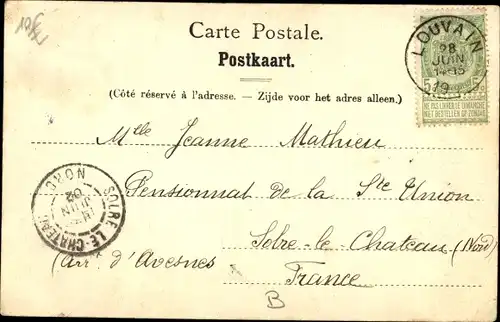 Carte Postale.
Postkaart.
(Côté réservé à l'adresse. — Zijde voor het adres alleen.)
LOUVAIN
28
JUIN
5
NE PAS LIVRER LE DIMANCHE
NIET BESTELLEN OP ZONDAG
Mlle Jeanne Mathieu
Pensionnat de la Ste Union
Solre-le-Chateau (Nord)
(Arr.t d'Avesnes)
France
SOLRE-LE-CHATEAU
NORD
JUIN
02
B